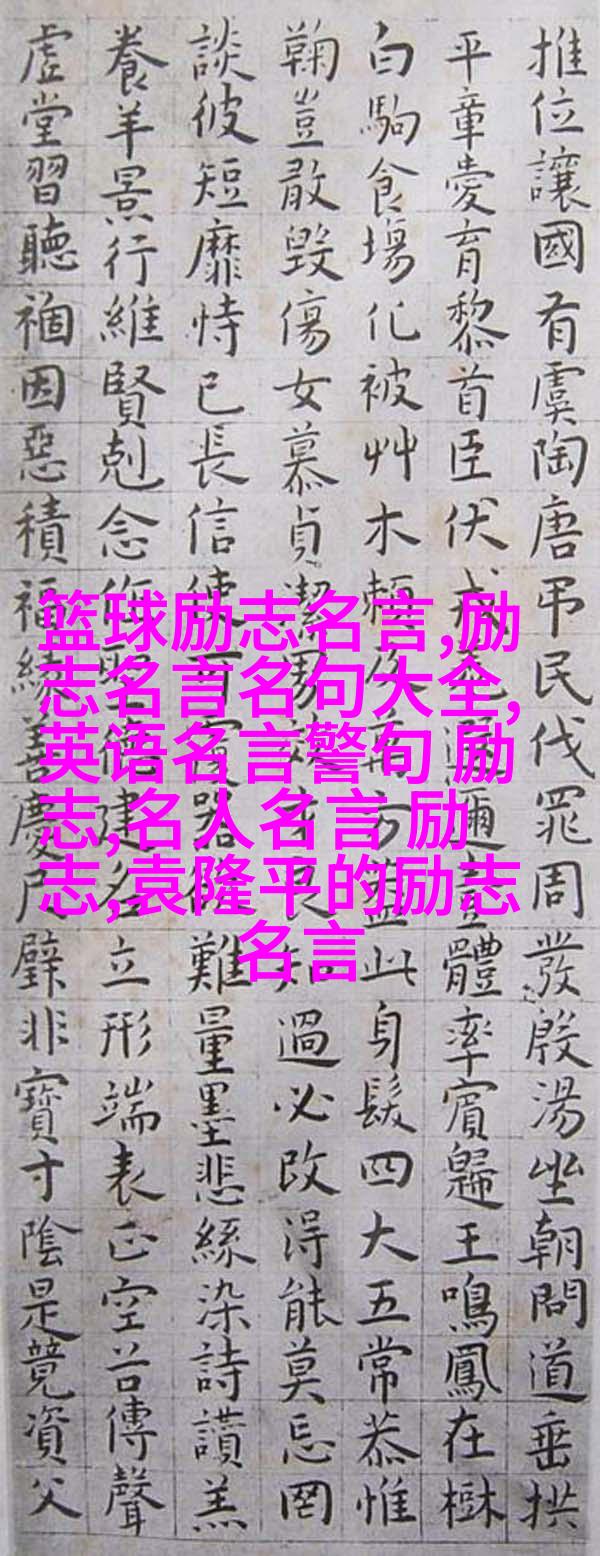 推位讓國有虞陶唐弔民伐罪周發殷湯坐朝問道垂拱
平章愛育黎首臣伏戎羌遐邇壹體率賓歸王鳴鳳在樹
白駒食場化被艸木賴及方蓋此身髮四大五常恭惟
鞠豈敢毀傷女慕貞潔男效才良知過必改得能莫忘罔
談彼短靡恃己長信使可覆器欲難量墨悲絲染詩讚羔
養羊景行維賢剋念作聖德建名立形端表正空谷傳聲
虛堂習聽禍因惡積福緣善慶尺璧非寶寸陰是競資父
篮球励志名言,励
志名言名句大全,
英语名言警句 励
志,名人名言 励
志,袁隆平的励志
名言